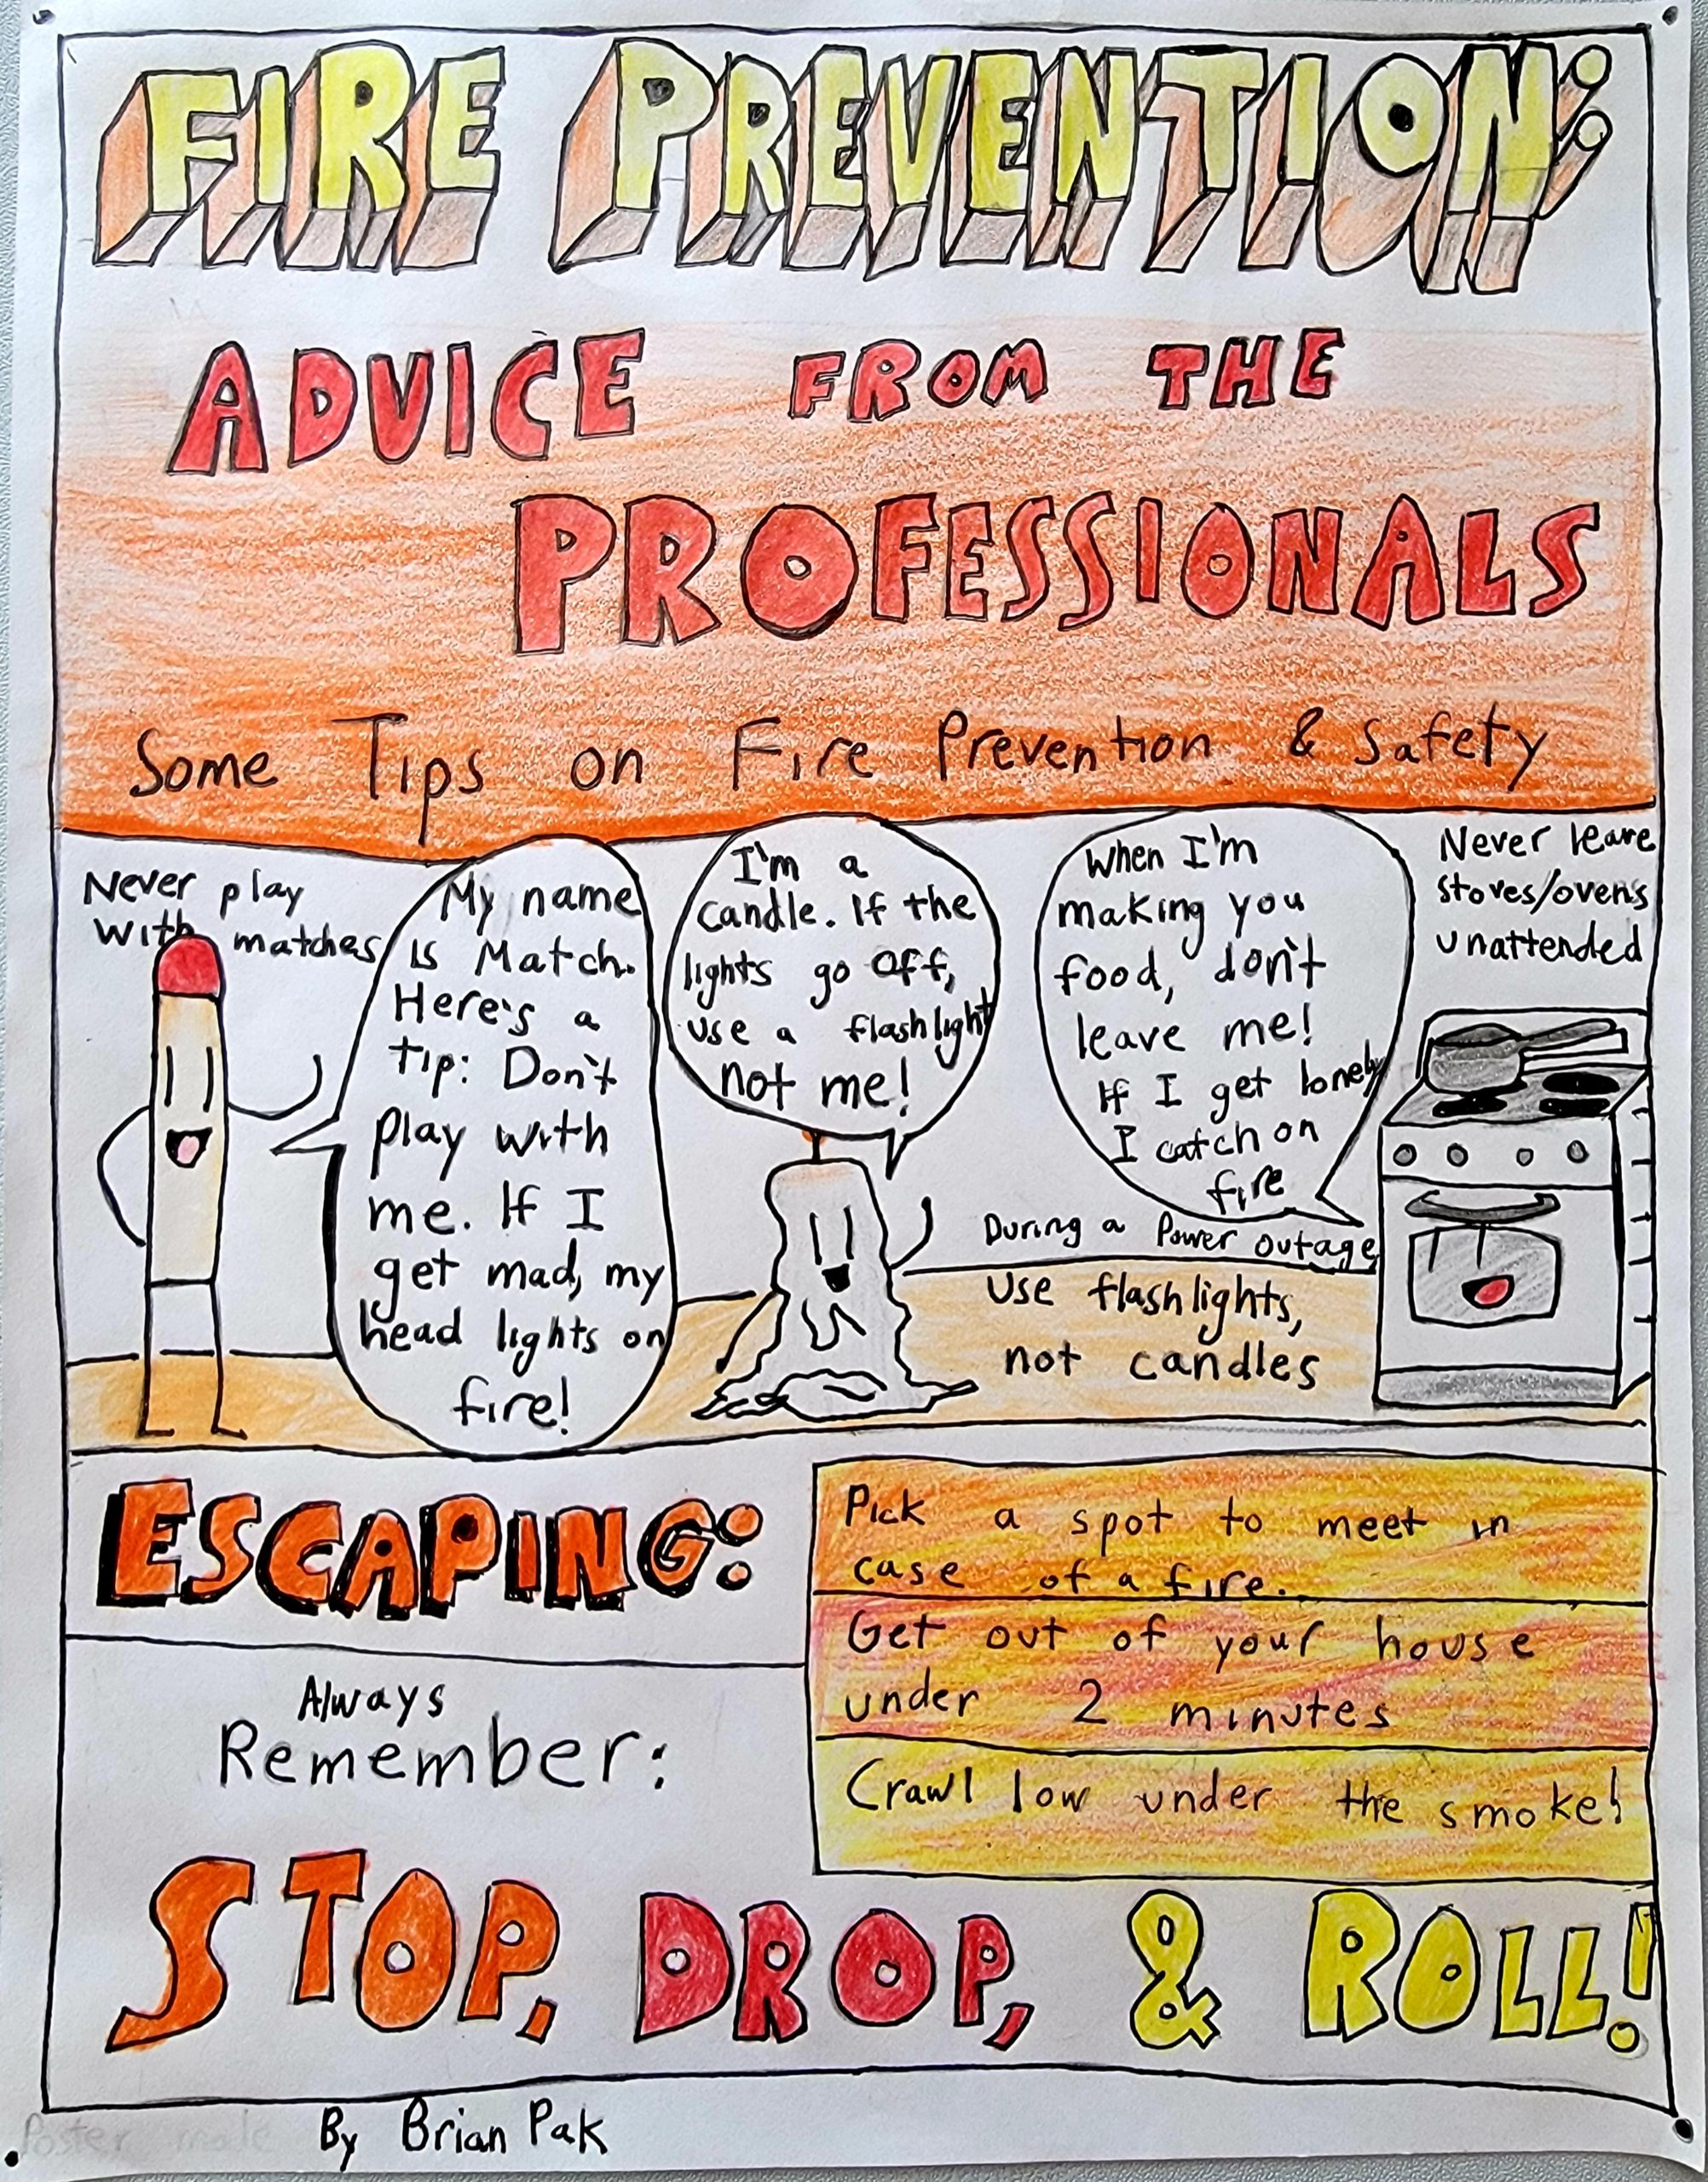 FIRE PREVENTION:
ADVICE FROM THE
PROFESSIONALS
Some Tips on Fire Prevention & Safety
Never play
with matches
My name
is Match.
Here's a
tip: Don't
play with
me. If I
get mad, my
head lights on
fire!
I'm a
candle. If the
lights go off,
use a flashlight
not me!
When I'm
making you
food, don't
leave me!
If I get lonely
I catch on
fire
Never leave
stoves/ovens
unattended
During a Power outage
use flashlights,
not candles
ESCAPING:
Pick a spot to meet in
case of a fire.
Get out of your house
under 2 minutes
Crawl low under the smoke!
Always
Remember:
STOP, DROP, & ROLL!
Poster made By Brian Pak